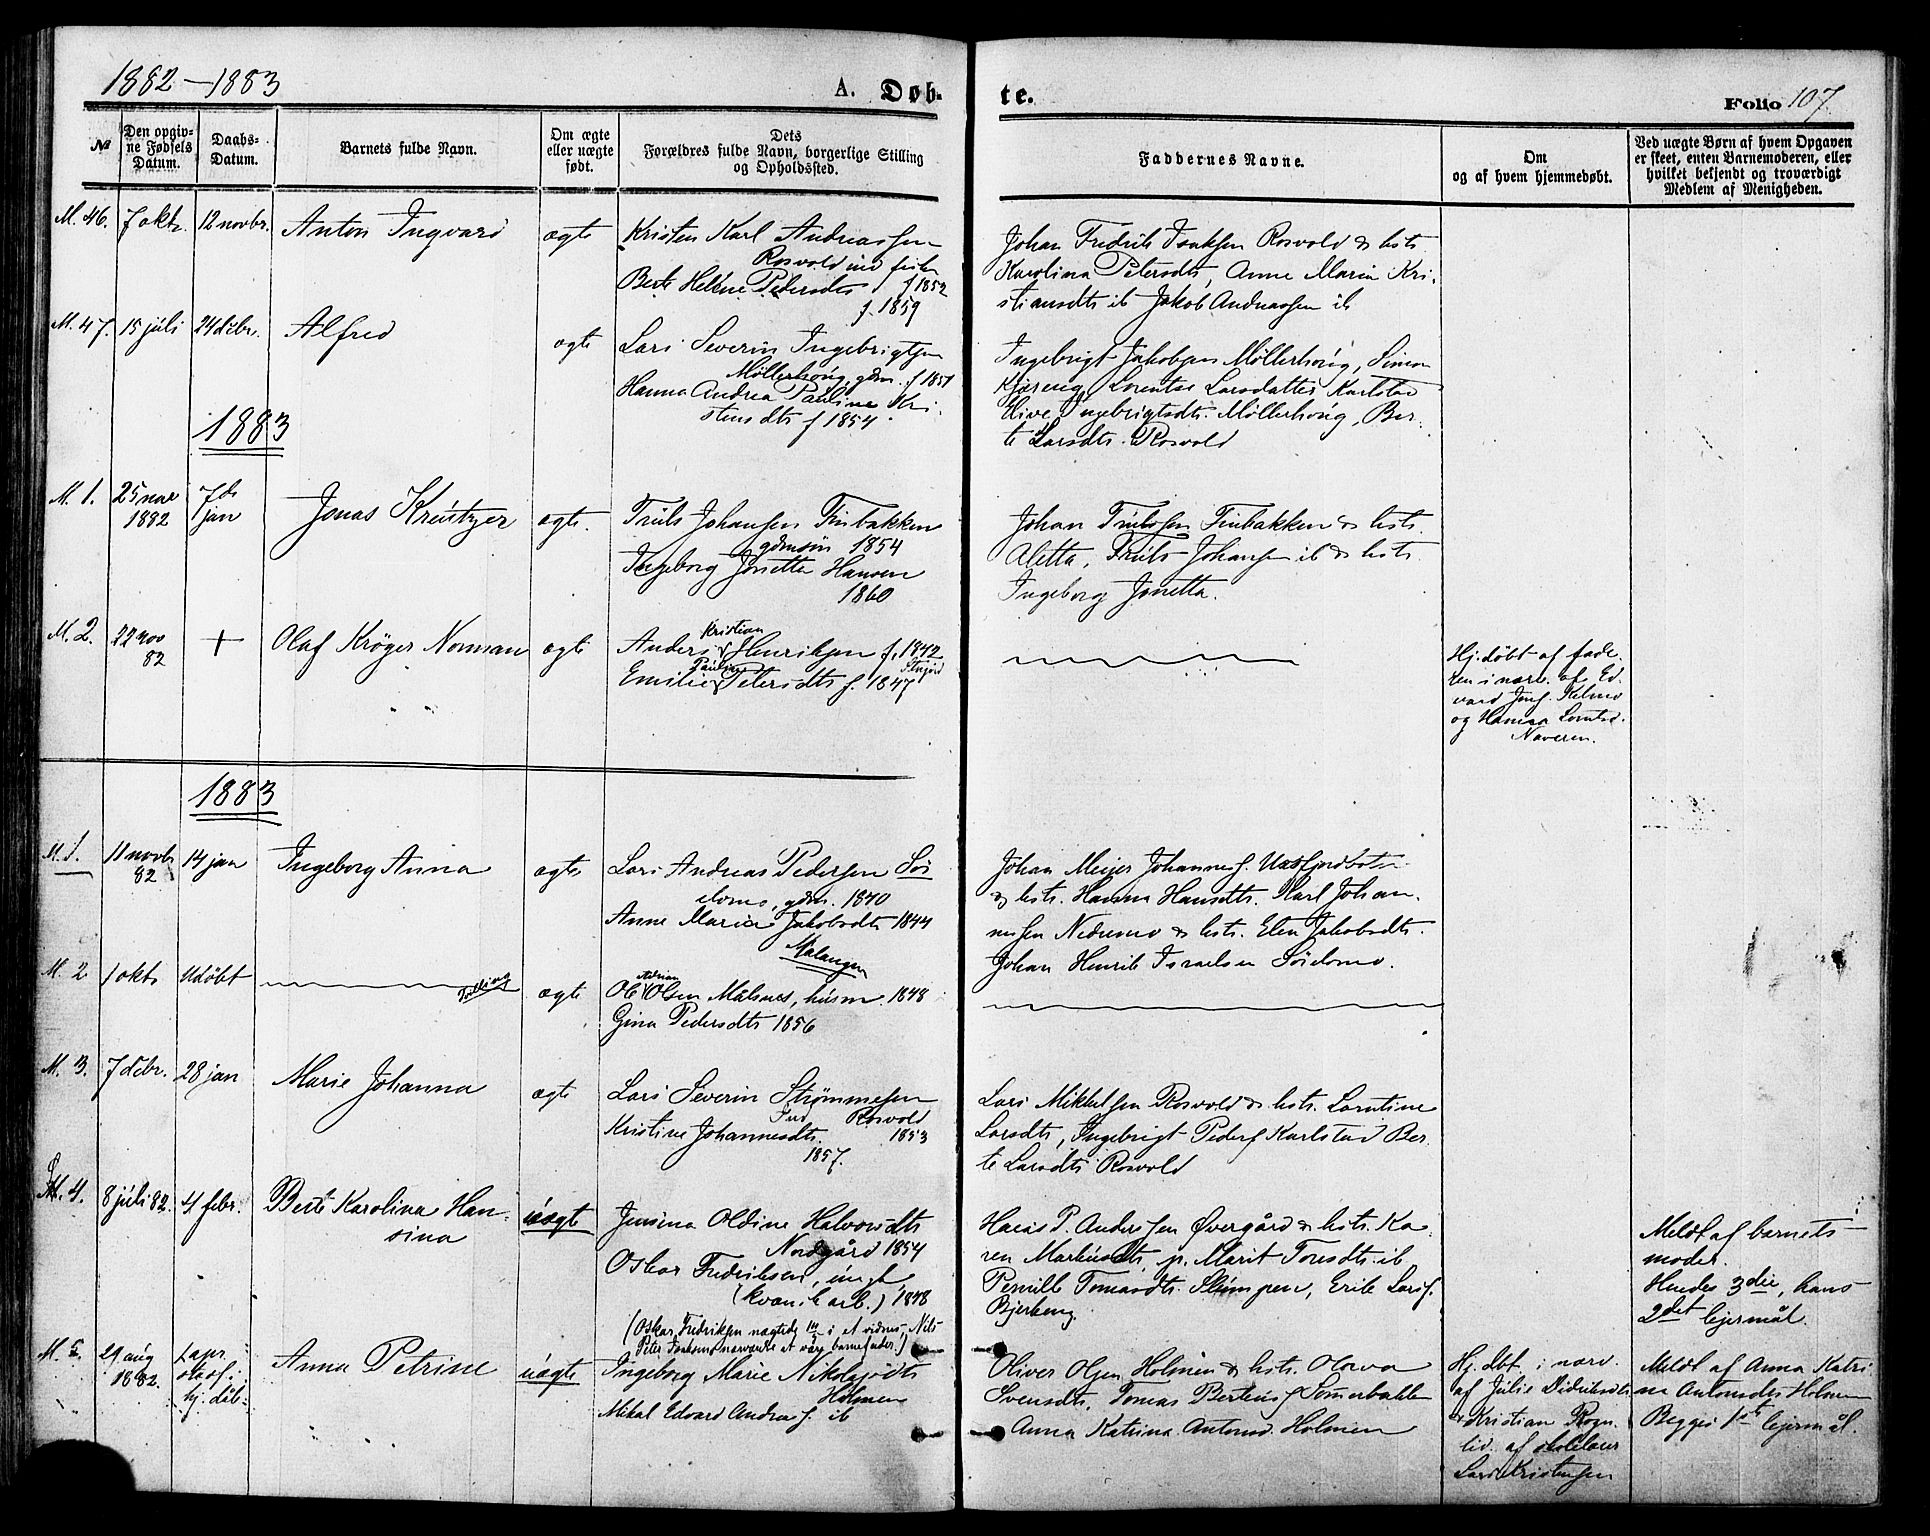 1882–1883
A. Døb-
te.
Folio 107.
№
Den opgiv-
ne Fødsels
Datum.
Daabs-
Datum.
Barnets fulde Navn.
Om ægte
eller uægte
født.
Dets
Forældres fulde Navn, borgerlige Stilling
og Opholdssted.
Faddernes Navne.
Om
og af hvem hjemmedøbt.
Ved uægte Børn af hvem Opgaven
er skeet, enten Barnemoderen, eller
hvilket bekjendt og troværdigt
Medlem af Menigheden.
M. 46.
7 oktr.
12 novbr.
Anton Ingvard
ægte
Kristen Karl Andreassen
Rosvold ind
Berte Heléne Pedersdts f 1852
f. 1859
Johan Fredrik Isaksen Rosvold & hstr
Karolina Petersdtr, Anne Maria Kri-
stiansdtr ib Jakob Andreassen ib
M. 47.
15 juli
24 debr.
Alfred
ægte
Lars Severin Ingebrigtsen
Møllerhaúg, gdm. f 1851
Hanna Andrea Pauline Kri-
stensdtr f 1854.
Ingebrigt Jakobsen Møllerhaúg, Simon
Kjæreng, Lorentse Larsdatter Karlstad
Elive Ingebrigtsdtr. Møllerhaúg, Ber-
te Larsdtr. Rosvold
1883
M. 1.
25 nov
1882
7de
jan
Jonas Kreútzer
ægte.
Trúls Johansen Finbakken
gdmsøn 1854
Ingeborg Jonetta Hansen
1860
Johan Trúlssen Finbakken & hstr.
Aletta, Trúls Johansen ib & hstr.
Ingeborg Jonetta.
M. 2.
22 nov
82
+
Olaf Krøger Norman
ægte
Kristian
Anders Henriksen f. 1842
Paulina
Emilie Petersdtr f. 1847
Hj.døbt af fade-
ren i nærv. af Ed-
vard Jens. Kelmo
og Hanna Lorntsd.
Naveren.
1883
M. 1.
11 novbr
82
14 jan
Ingeborg Anna
ægte
Lars Andreas Pedersen Sør
elvmo, gdm. 1840
Anne Maria Jakobsdtr 1844
Johan Meijer Johannes. Uxsfjordbotn
& hstr. Hanna Hansdtr. Karl Johan-
nesen Nedremo & hstr. Elen Jakobsdtr.
Johan Henrik Israelsen Sördemo.
M. 2
1 oktr
Udøbt
Tvilling
ægte
Malangen
Adrian
Ole Olsen Målsnes, húsm. 1848
Gina Pedersdtr 1856
M. 3.
7 debr.
28 jan
Marie Johanna
ægte
Lars Severin Strømmesen
Ind. Rosvold
Kristine Johannesdtr. 1853
1857.
Lars Mikkelsen Rosvold & hstr. Lorntine
Larsdtr, Ingebrigt Peders Karlstad Ber-
te Larsdtr Rosvold
M. 4.
8 júli 82.
4 febr.
Berte Karolina Han-
sina
úægte
Jensina Oldine Halvorsdtr
Nordgård 1854
Oskar Fredriksen, úngk.
(kvænsk arb.) 1848
(Oskar Fredriksen nægtede i et vidnes, Nils
Peter Isaksens nærværelse at være barnefader.)
Hans P. Anderssen Øvergård & hstr. Ka-
ren Markúsdtr, p. Marit Toresdtr. ib
Pernille Tomasdtr. Slúmpen, Erik Lars.
Bjerkeng.
Meldt af barnets
moder.
Hendes 3die, hans
2det lejermål.
M. 5.
29 aúg
1882.
hj.dåb.
Anna Petrine
úægte
Ingeborg Marie Nikolajsdtr
Holmen
Mikal Edvard Andreas. ib
Oliver Olsen Holmen & hstr. Olava
Svensdtr, Tomas Berteús Sommerbakken
Anna Katrina Antonsd. Holmen
Hj. dbt. i nærv.
af Júlie Didriksdtr
& Kristian Rogn-
lid af skolelærer
Lars Kristensen
Meldt af Anna Katri-
na Antonsdtr Holmen
Begges 1ste lejermål.